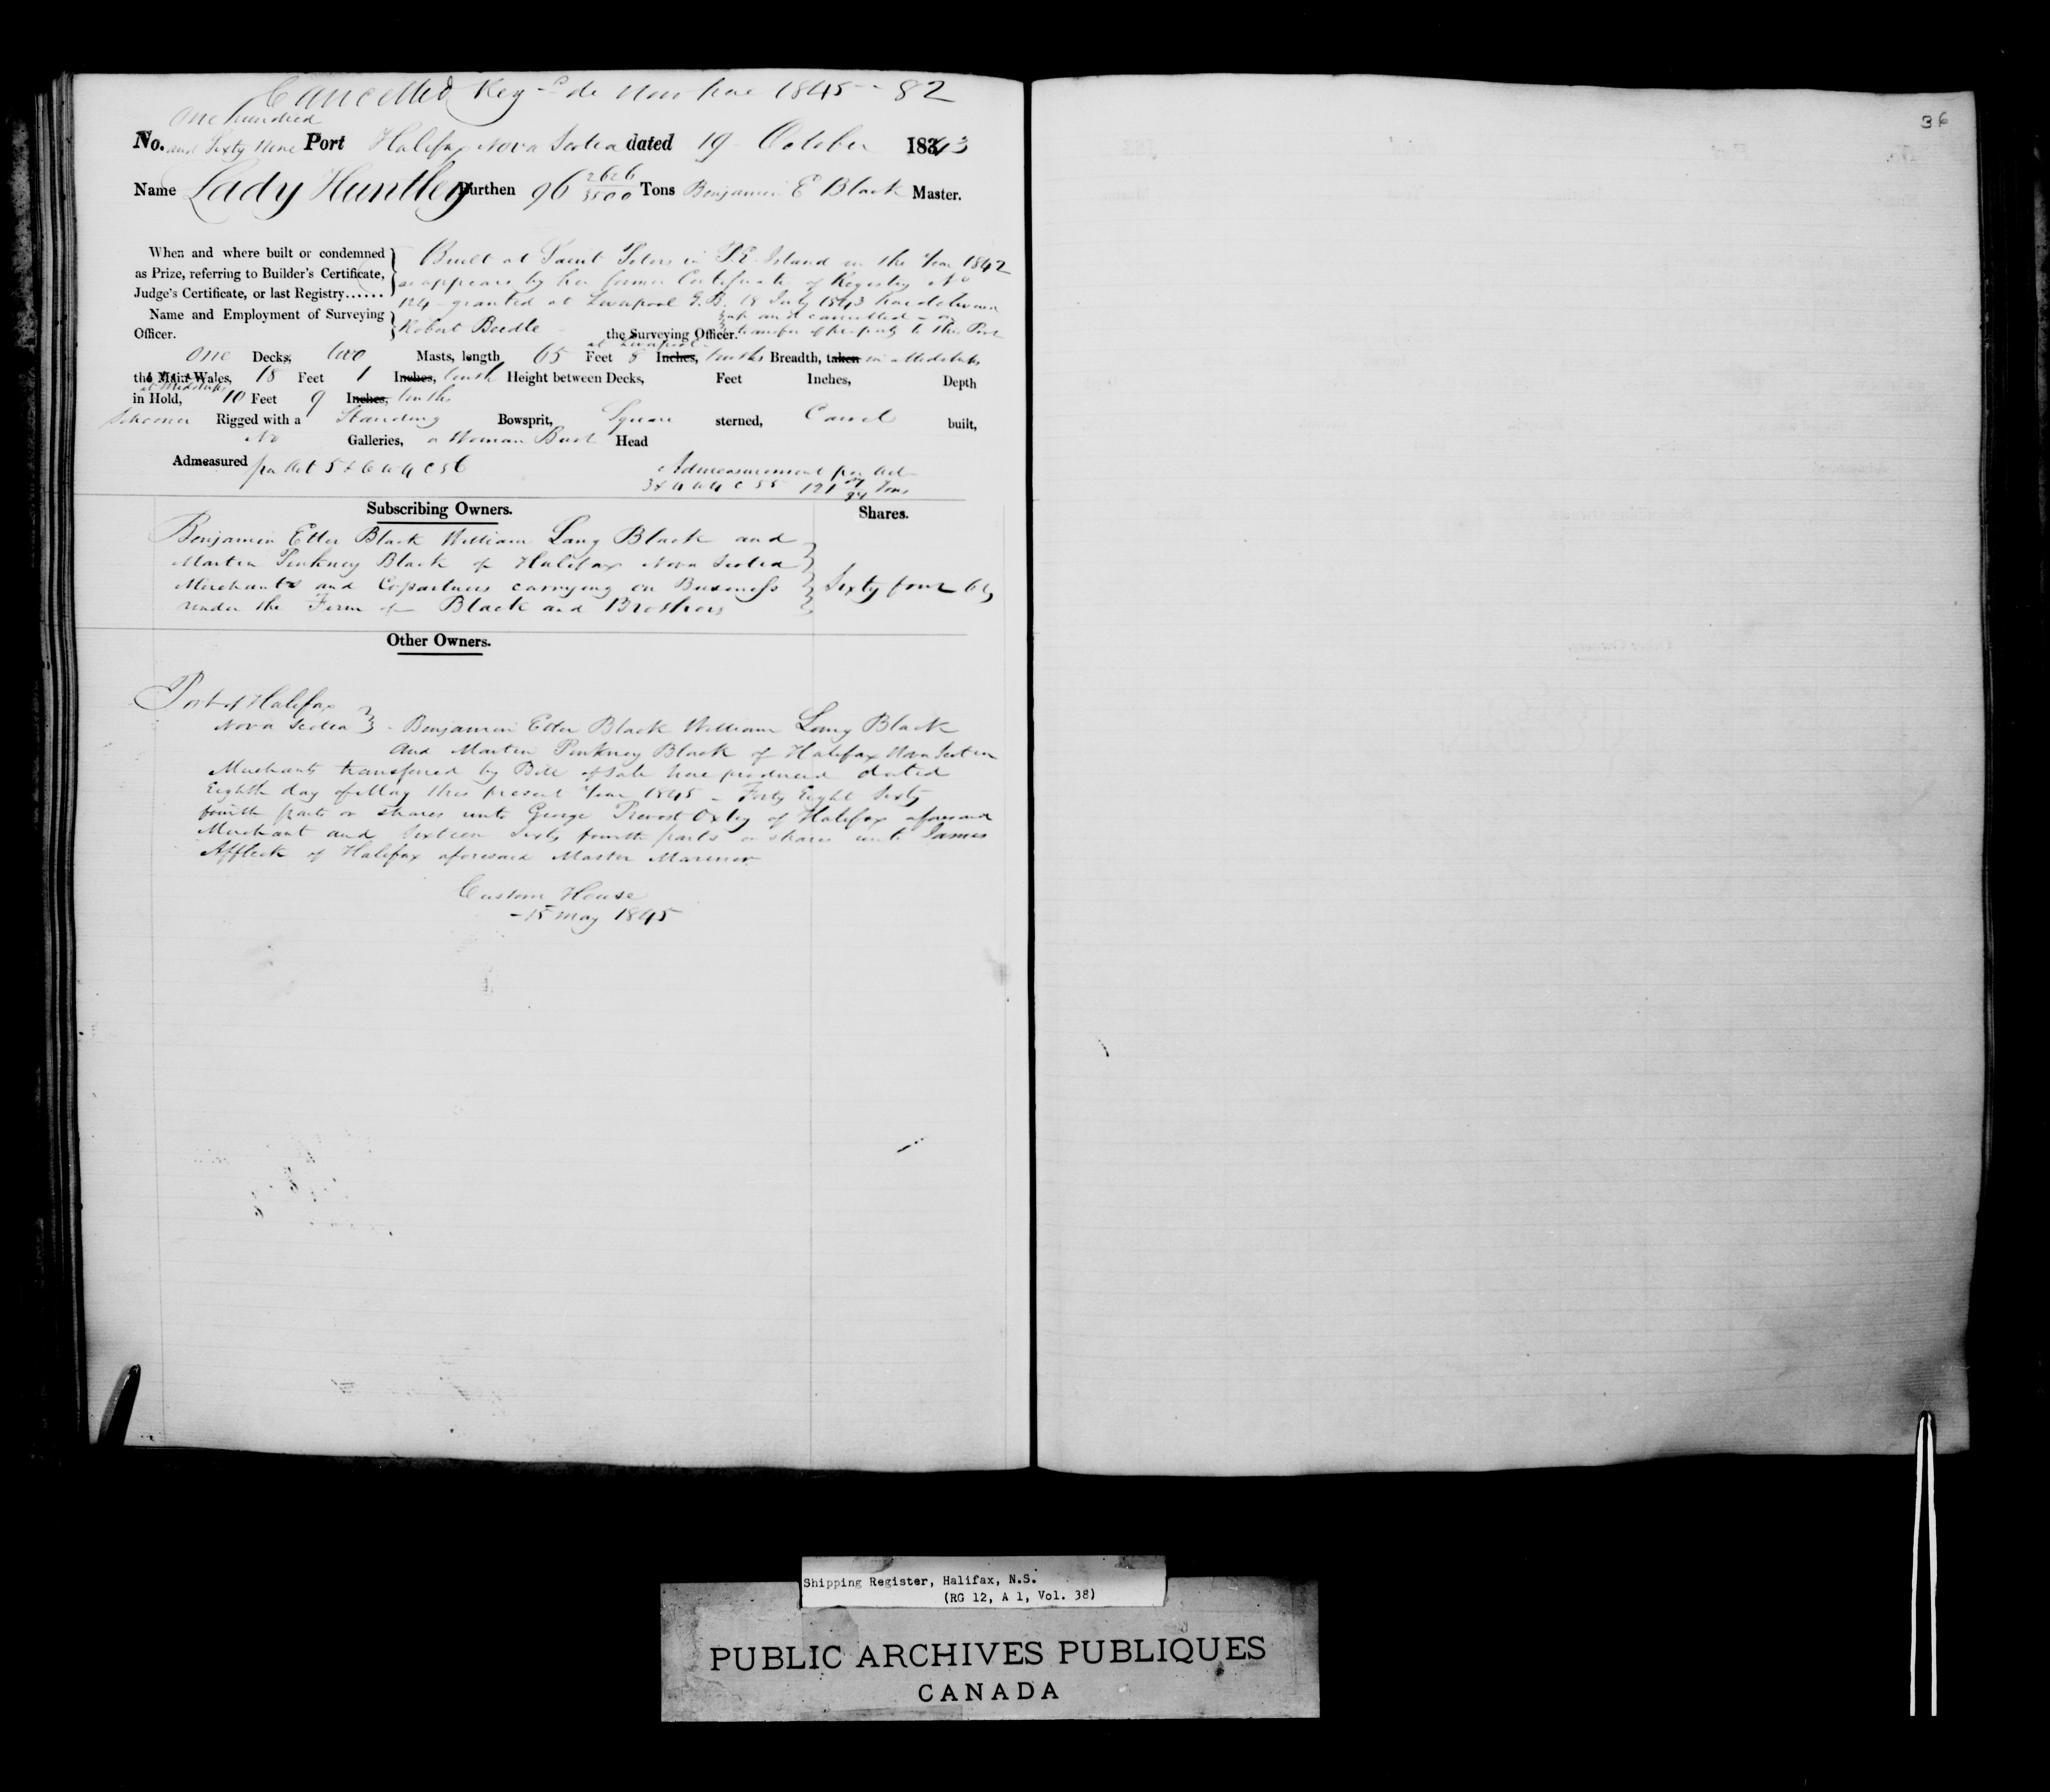 Cancelled Reg de Novo here 1845 - 82
36
One hundred
No. and Sixty Nine Port Halifax Nova Scotia dated 19 October 1843
Name Lady Huntley Burthen 96 2626/3500 Tons Benjamin E Black Master.
When and where built or condemned
as Prize, referring to Builder's Certificate,
Judge's Certificate, or last Registry......
Built at Saint Peters in P.E. Island in the Year 1842
as appears by her former Certificate of Registry No
124 granted at Liverpool G.B. 18 July 1843 here delivered
up and cancelled - on
transfer of property to this Port
Name and Employment of Surveying
Officer.
Robert Beedle the Surveying Officer.
at Liverpool
One Decks, two Masts, length 65 Feet 8 Inches, tenths Breadth, taken in Midships
the Main Wales, 18 Feet 1 Inches, tenth Height between Decks, Feet Inches, Depth
at Midships
in Hold, 10 Feet 9 Inches, tenths
Schooner Rigged with a Standing Bowsprit, Square sterned, Carvel built,
No Galleries, a Woman Bust Head
Admeasured per Act 5 & 6 W 4 C 56
Admeasurement per Act
3 & 4 W 4 C 55 121 /94 Tons
Subscribing Owners.
Shares.
Benjamin Etter Black William Lang Black and
Martin Pinkney Black of Halifax Nova Scotia
Merchants and Copartners carrying on Business
under the Firm of Black and Brothers
Sixty four 64
Other Owners.
Port of Halifax
Nova Scotia - Benjamin Etter Black William Lang Black
and Martin Pinkney Black of Halifax Nova Scotia
Merchants transferred by Bill of Sale here produced dated
Eighth day of May this present Year 1845 - Forty Eight Sixty
fourth parts or shares unto George Prevost Oxley of Halifax aforesaid
Merchant and Sixteen Sixty fourth parts or shares unto James
Affleck of Halifax aforesaid Master Mariner
Custom House
- 15 May 1845
Shipping Register, Halifax, N.S.
(RG 12, A 1, Vol. 38)
PUBLIC ARCHIVES PUBLIQUES
CANADA